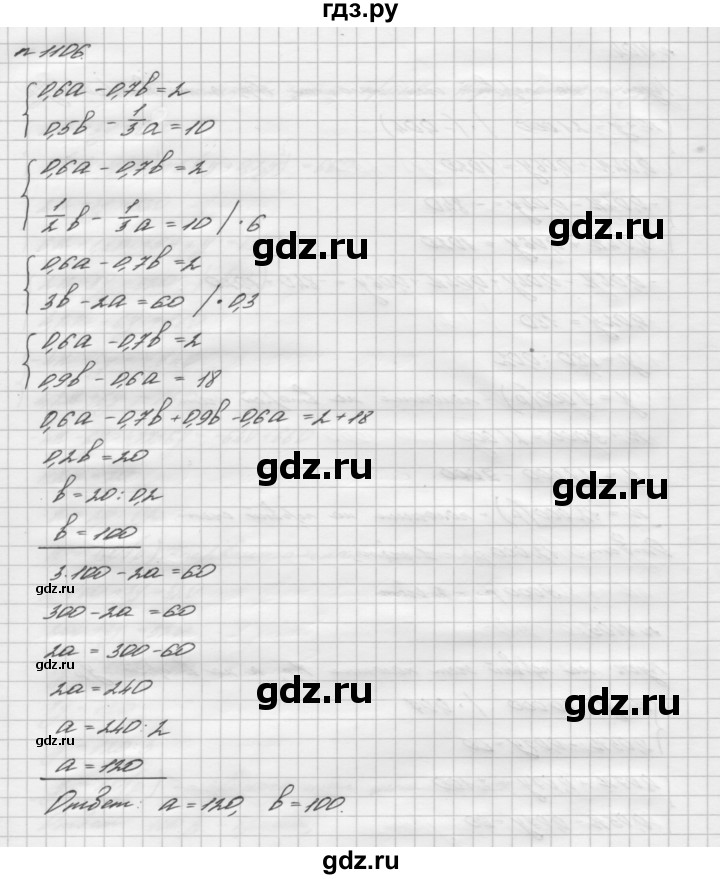 гдз.ру
n 1106.
0,6a - 0,7b = 2
0,5b - 1/3 a = 10
0,6a - 0,7b = 2
1/2 b - 1/3 a = 10 / · 6
gdz.ru
gdz.ru
0,6a - 0,7b = 2
3b - 2a = 60 / · 0,3
0,6a - 0,7b = 2
0,9b - 0,6a = 18
0,6a - 0,7b + 0,9b - 0,6a = 2 + 18
0,2b = 20
gdz.ru
gdz.ru
b = 20 : 0,2
b = 100
3·100 - 2a = 60
gdz.ru
300 - 2a = 60
2a = 300 - 60
gdz.ru
2a = 240
gdz.ru
gdz.ru
a = 240 : 2
gdz.ru
a = 120
Ответ: a = 120, b = 100.
gdz.ru